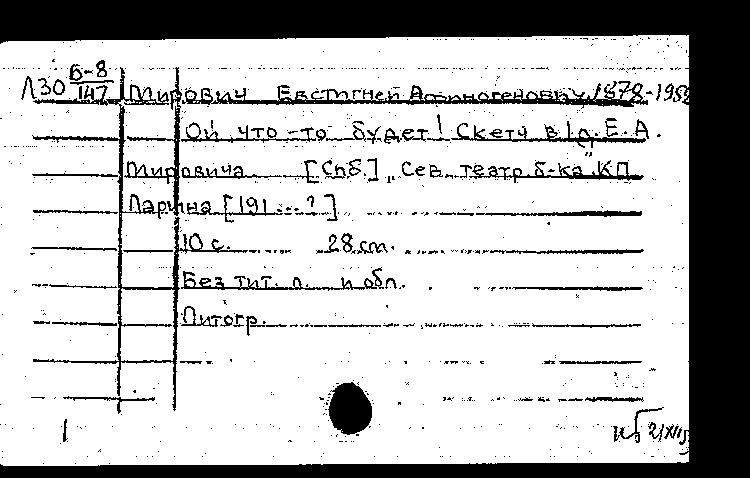 Л30 Б-8/147 Мирович Евстигней Афиногенович, 1878-1952
Ой что-то будет! Скетч в 1 д. Е. А.
Мировича [Спб.] „Сев. театр. б-ка" К.П.
Ларина [191...?]
10 с. 28 cm.
Без тит. л. и обл.
Литогр.
1